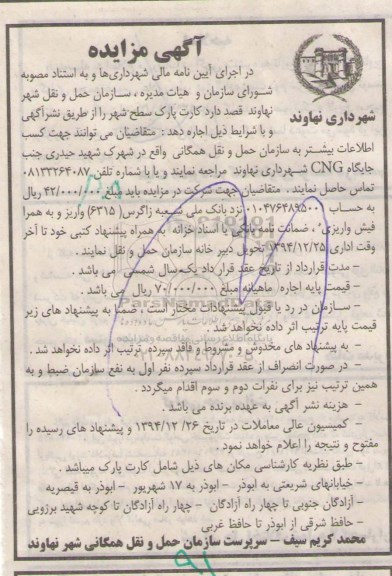 آگهی مزایده
شهرداری نهاوند
در اجرای آیین نامه مالی شهرداری‌ها و به استناد مصوبه
شورای سازمان و هیات مدیره ، سازمان حمل و نقل شهر
نهاوند قصد دارد کارت پارک سطح شهر را از طریق نشرآگهی
و با شرایط ذیل اجاره دهد : متقاضیان می توانند جهت کسب
اطلاعات بیشتر به سازمان حمل و نقل همگانی واقع در شهرک شهید حیدری جنب
جایگاه CNG شهرداری نهاوند مراجعه نمایند و یا با شماره تلفن ۰۸۱۳۳۲۶۴۰۸۷
تماس حاصل نمایند . متقاضیان جهت شرکت در مزایده باید مبلغ ۴۲/۰۰۰/۰۰۰ ریال
به حساب ۰۱۰۴۷۶۴۸۹۵۰۰ نزد بانک ملی شعبه زاگرس( ۶۳۱۵) واریز و به همرا
فیش واریزی ، ضمانت نامه بانکی یا اسناد خزانه به همراه پیشنهاد کتبی خود تا آخر
وقت اداری ۱۳۹۴/۱۲/۲۵ تحویل دبیر خانه سازمان حمل و نقل نمایند .
- مدت قرارداد از تاریخ عقد قرار داد یک سال شمسی می باشد .
- قیمت پایه اجاره ماهیانه مبلغ ۷۰/۰۰۰/۰۰۰ ریال می باشد .
- سازمان در رد یا قبول پیشنهادات مختار است ، ضمنا به پیشنهاد های زیر
قیمت پایه ترتیب اثر داده نخواهد شد .
- به پیشنهاد های مخدوش و مشروط و فاقد سپرده ترتیب اثر داده نخواهد شد .
- در صورت انصراف از عقد قرارداد سپرده نفر اول به نفع سازمان ضبط و به
همین ترتیب نیز برای نفرات دوم و سوم اقدام میگردد .
- هزینه نشر آگهی به عهده برنده می باشد .
- کمیسیون عالی معاملات در تاریخ ۱۳۹۴/۱۲/۲۶ و پیشنهاد های رسیده را
مفتوح و نتیجه را اعلام خواهد نمود .
- طبق نظریه کارشناسی مکان های ذیل شامل کارت پارک میباشد .
- خیابانهای شریعتی به ابوذر - ابوذر به ۱۷ شهریور - ابوذر به قیصریه
- آزادگان جنوبی تا چهار راه آزادگان - چهار راه آزادگان تا کوچه شهید برزویی
- حافظ شرقی از ابوذر تا حافظ غربی
محمد کریم سیف - سرپرست سازمان حمل و نقل همگانی شهر نهاوند